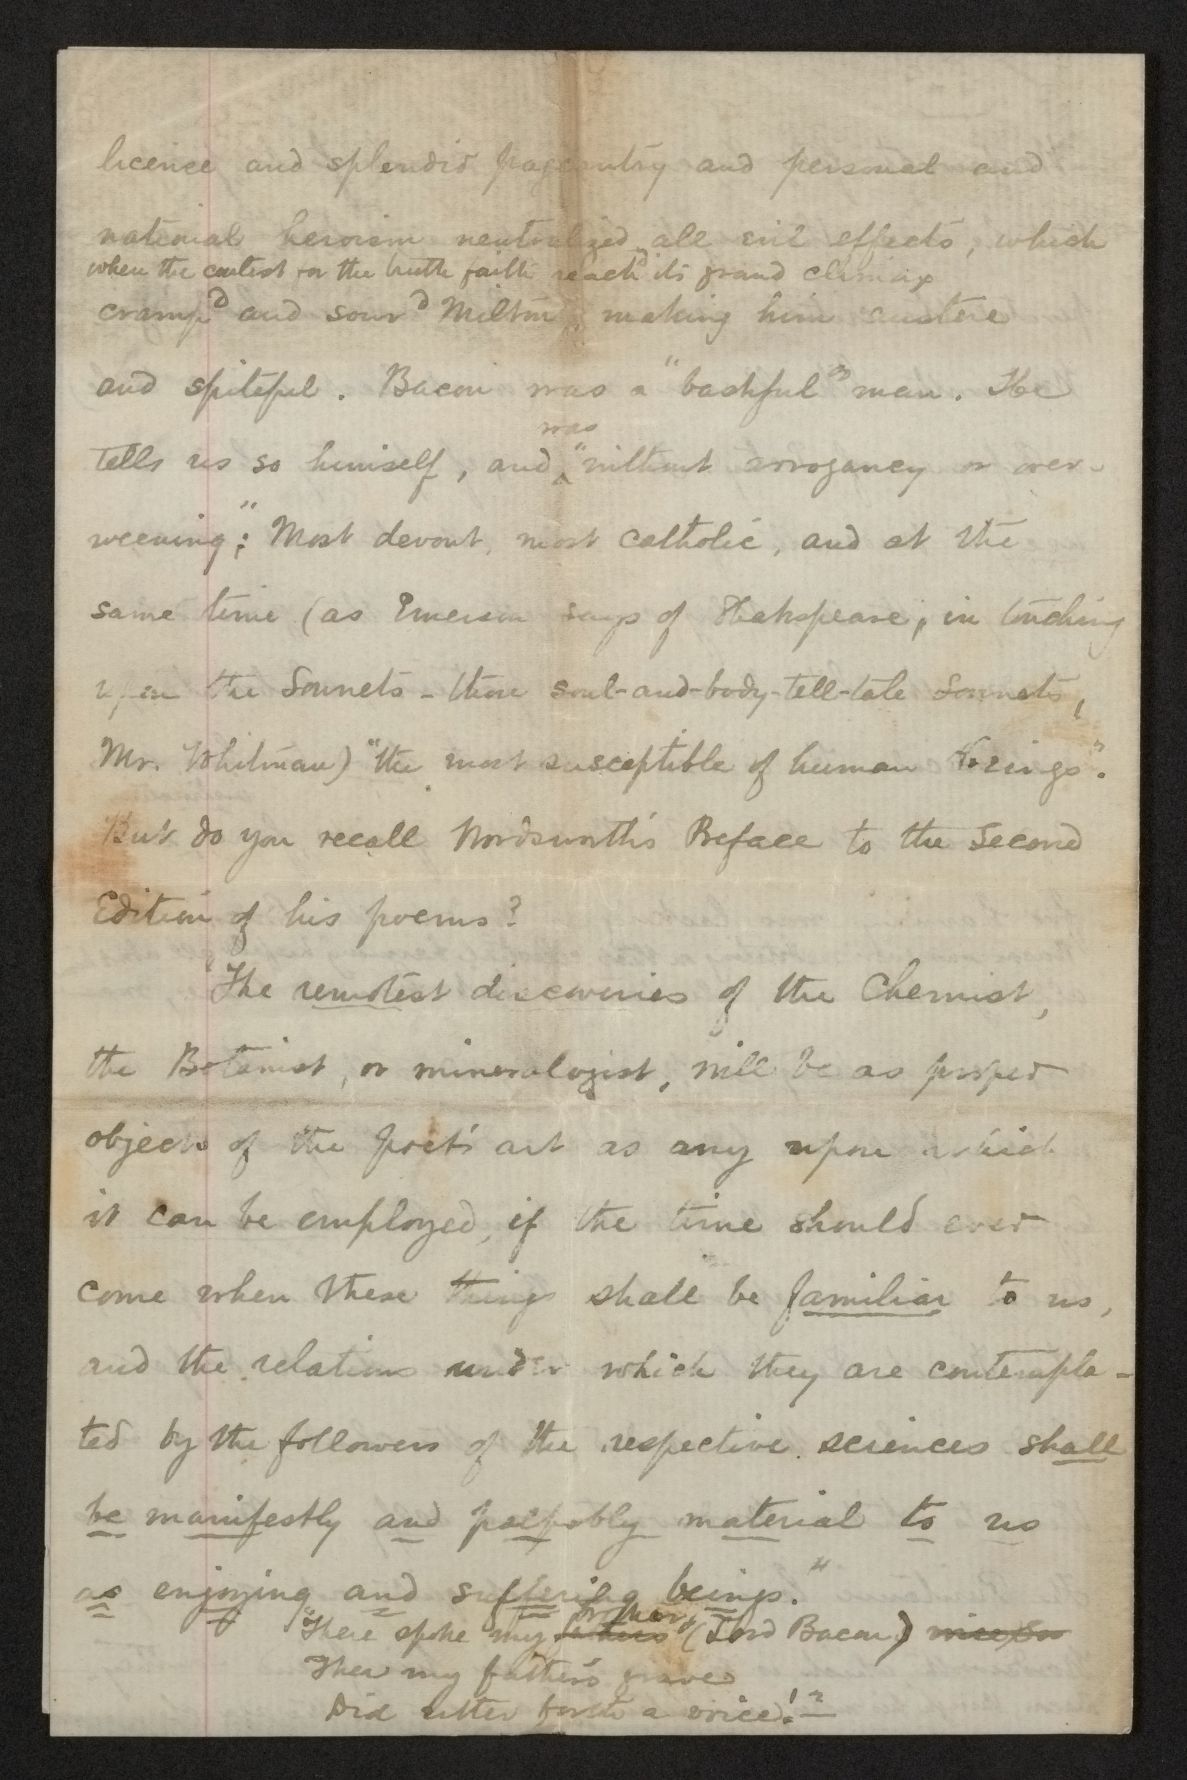 licence and splendid pageantry and personal and
national heroism neutralized all evil effects, which
when the contest for the truth faith reach'd its grand climax
cramp'd and sour'd Milton, making him austere
and spiteful. Bacon was a "bashful" man. He
tells us so himself, and
was
"without arrogancy or over-
weening"; Most devout, most catholic, and at the
same time (as Emerson says of Shakspeare, in touching
upon the Sonnets - those soul-and-body-tell-tale Sonnets,
Mr. Whitman) "the most susceptible of human beings".
But do you recall Wordsworth's Preface to the Second
Edition of his poems?
"The remotest discoveries of the Chemist,
the Botanist, or mineralogist, will be as proper
objects of the poet's art as any upon which
it can be employed, if the time should ever
come when these things shall be familiar to us,
and the relations under which they are contempla-
ted by the followers of the respective sciences shall
be manifestly and palpably material to us
as enjoying and suffering beings."
brother,
"There spoke my (Lord Bacon)
Then my father's grave
Did utter forth a voice!"